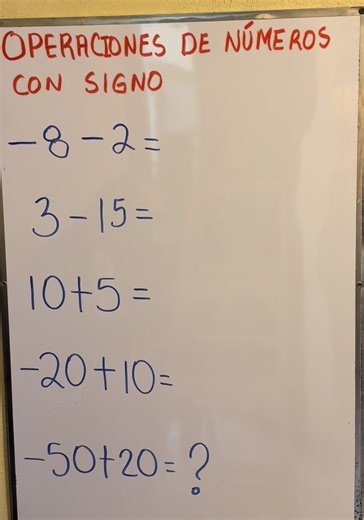 OPERACIONES DE NÚMEROS
CON SIGNO
-8-2=
3-15=
10+5=
-20+10=
-50+20=?